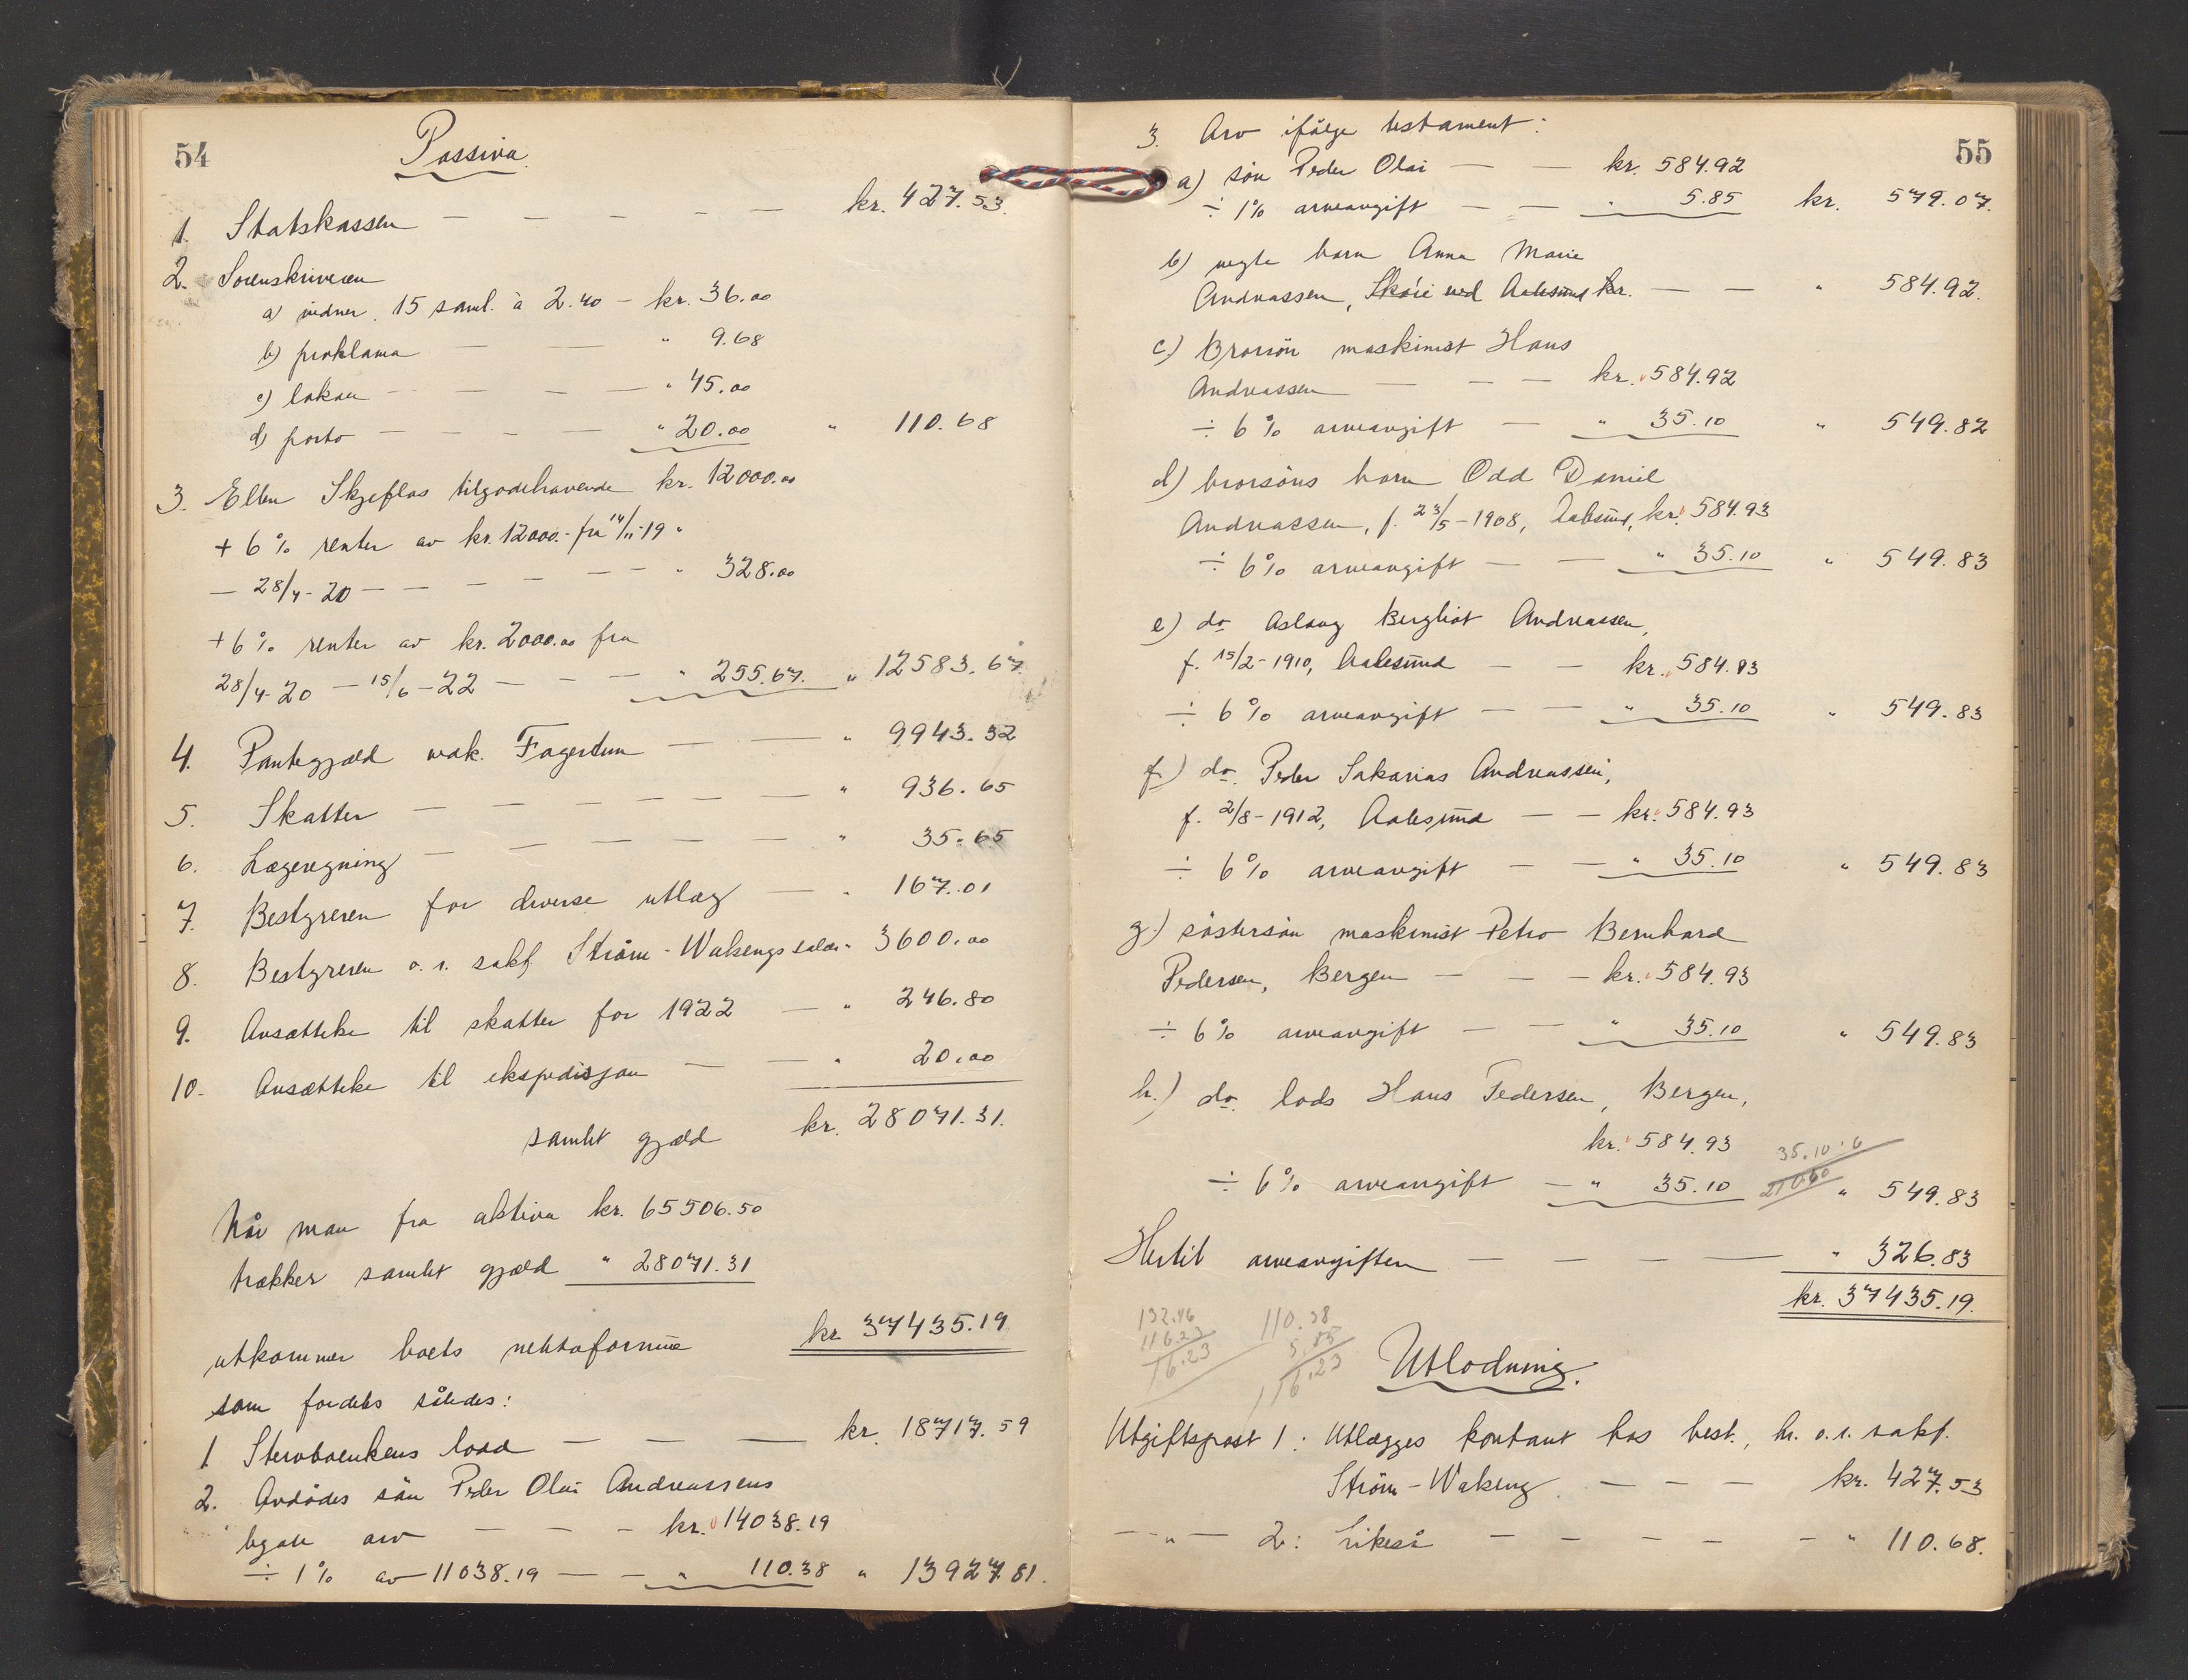 54
Passiva
1. Statskassen — — — — — kr. 427.53.
2. Sorenskriveren
a) vidner, 15 saml. à 2.40 — kr. 36.00
b) proklama — — " 9.68
c) lokau — — — — " 45.00
d) porto — — — — " 20.00 " 110.68
3. Ellen Skjeflos tilgodehavende kr. 12000.00
+ 6 % renter av kr. 12000.- fra 14/11-19 "
— 28/4-20 — — — — — — " 328.00
+ 6 % renter av kr. 2000.00 fra
28/4-20 — 15/6-22 — — — " 255.67. " 12583.67
4. Pantegjæld vak. Fagertun — — " 9943.32
5. Skatter — — — — — — " 936.65
6. Lægeregning — — — — — " 35.65
7. Bestyreren for diverse utlæg — " 167.01
8. Bestyreren o.r. sakf. Strøm-Wakengs salær " 3600.00
9. Avsættelse til skatter for 1922 — " 246.80
10. Avsættelse til ekspedisjon — — " 20.00
samlet gjæld kr. 28071.31.
Når man fra aktiva kr. 65506.50
trækker samlet gjæld " 28071.31
utkommer boets nettoformue kr 37435.19
som fordeles således:
1 Stervboenkens lodd — — — kr. 18717.59
2. Avdødes søn Peder Olai Andreassens
legale arv — — — kr. 14038.19
÷ 1 % av 11038.19 — — " 110.38 " 13927.81.
55
3. Arv ifølge testament:
a) søn Peder Olai — — kr. 584.92
÷ 1% arveavgift — — " 5.85 kr. 579.07.
b) negte barn Anna Marie
Andreassen, Skåre ved Aalesund kr. — — " 584.92.
c) Brorsøn maskinist Hans
Andreassen — — — kr. 584.92
÷ 6 % arveavgift — " 35.10 " 549.82
d) brorsøns barn Odd Daniel
Andreassen, f. 23/5-1908, Aalesund, kr. 584.93
÷ 6% arveavgift — — " 35.10 " 549.83
e) do Aslaug Bergliot Andreassen,
f. 15/2-1910, Aalesund — — kr. 584.93
÷ 6 % arveavgift — — " 35.10 " 549.83
f.) do. Peder Sakarias Andreassen,
f. 2/8-1912, Aalesund — — kr. 584.93
÷ 6 % arveavgift — — " 35.10 " 549.83
g.) søstersøn maskinist Petro Bernhard
Pedersen, Bergen — — — kr. 584.93
÷ 6 % arveavgift — — " 35.10 " 549.83
h.) do. lods Hans Pedersen, Bergen,
kr. 584.93
35.10·6
÷ 6 % arveavgift — " 35.10 " 549.83
210.60
Hertil arveavgiften — — — — " 326.83
kr. 37435.19.
132.46
116.23
16.23
110.38
5.85
116.23
Utlodning.
Utgiftspost 1: Utlægges kontant hos best., hr. o.r. sakf.
Strøm-Wakeng. — — — kr. 427.53
— " — 2: Likeså — — — — — " 110.68.